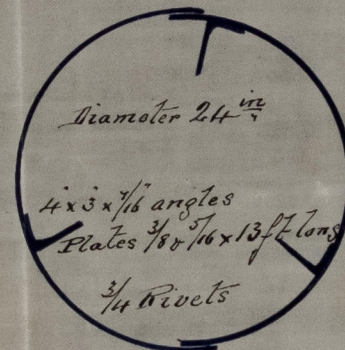 Diameter 24 in
4" x 3" x 7/16" angles
Plates 3/8 & 5/16 x 13 ft long
3/4 Rivets